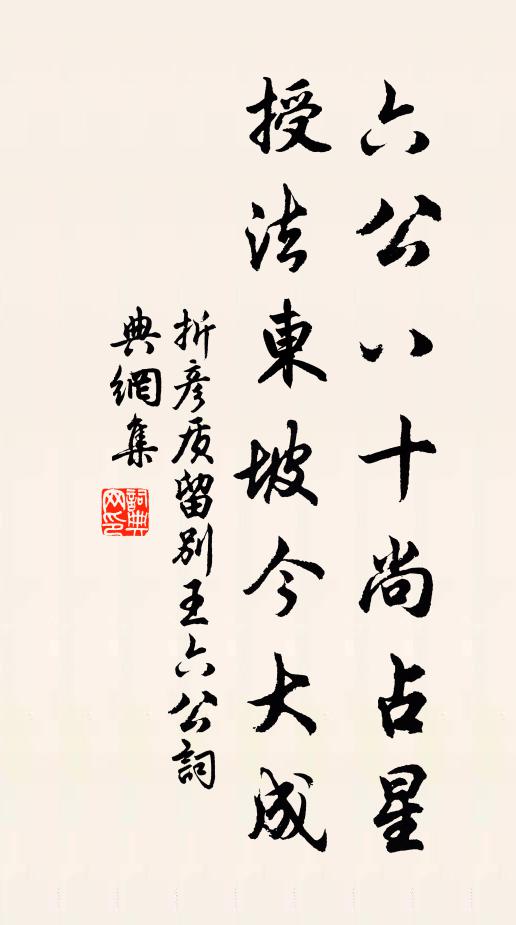 六公八十尚占星
授法東坡今大成
折彦质留别王六公詞
典網集
詞典
网印